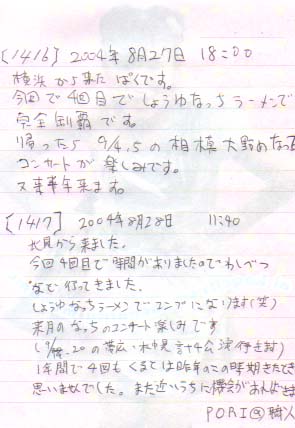 [1416] 2004年8月27日 18:00
横浜から来た ぱくです。
今回で4回目で しょうゆなっちラーメンで
完全制覇です。
帰ったら 9/4.5の相模大野のなっち
コンサートが 楽しみです。
又来年来ます。
[1417] 2004年8月28日 11:40
北見から来ました。
今回4回目で時間がありましたので
なで行ってきました。
しょうゆなっちラーメンでコンプになります(笑)
来月のなっちのコンサート楽しみです
1年間で4回もくるとは昨年のこの時期
思いませんでした。また近いうちに機会があれば
PORI@職人